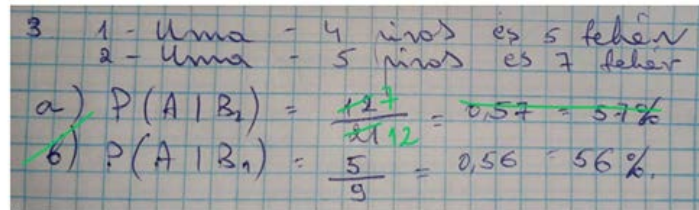 3 1 - Urna - 4 piros és 5 fehér
2 - Urna - 5 piros és 7 fehér
a) P(A | B₂) = 12 7 / 21 12 = 0,57 = 57%
b) P(A | B₁) = 5/9 = 0,56 = 56%.